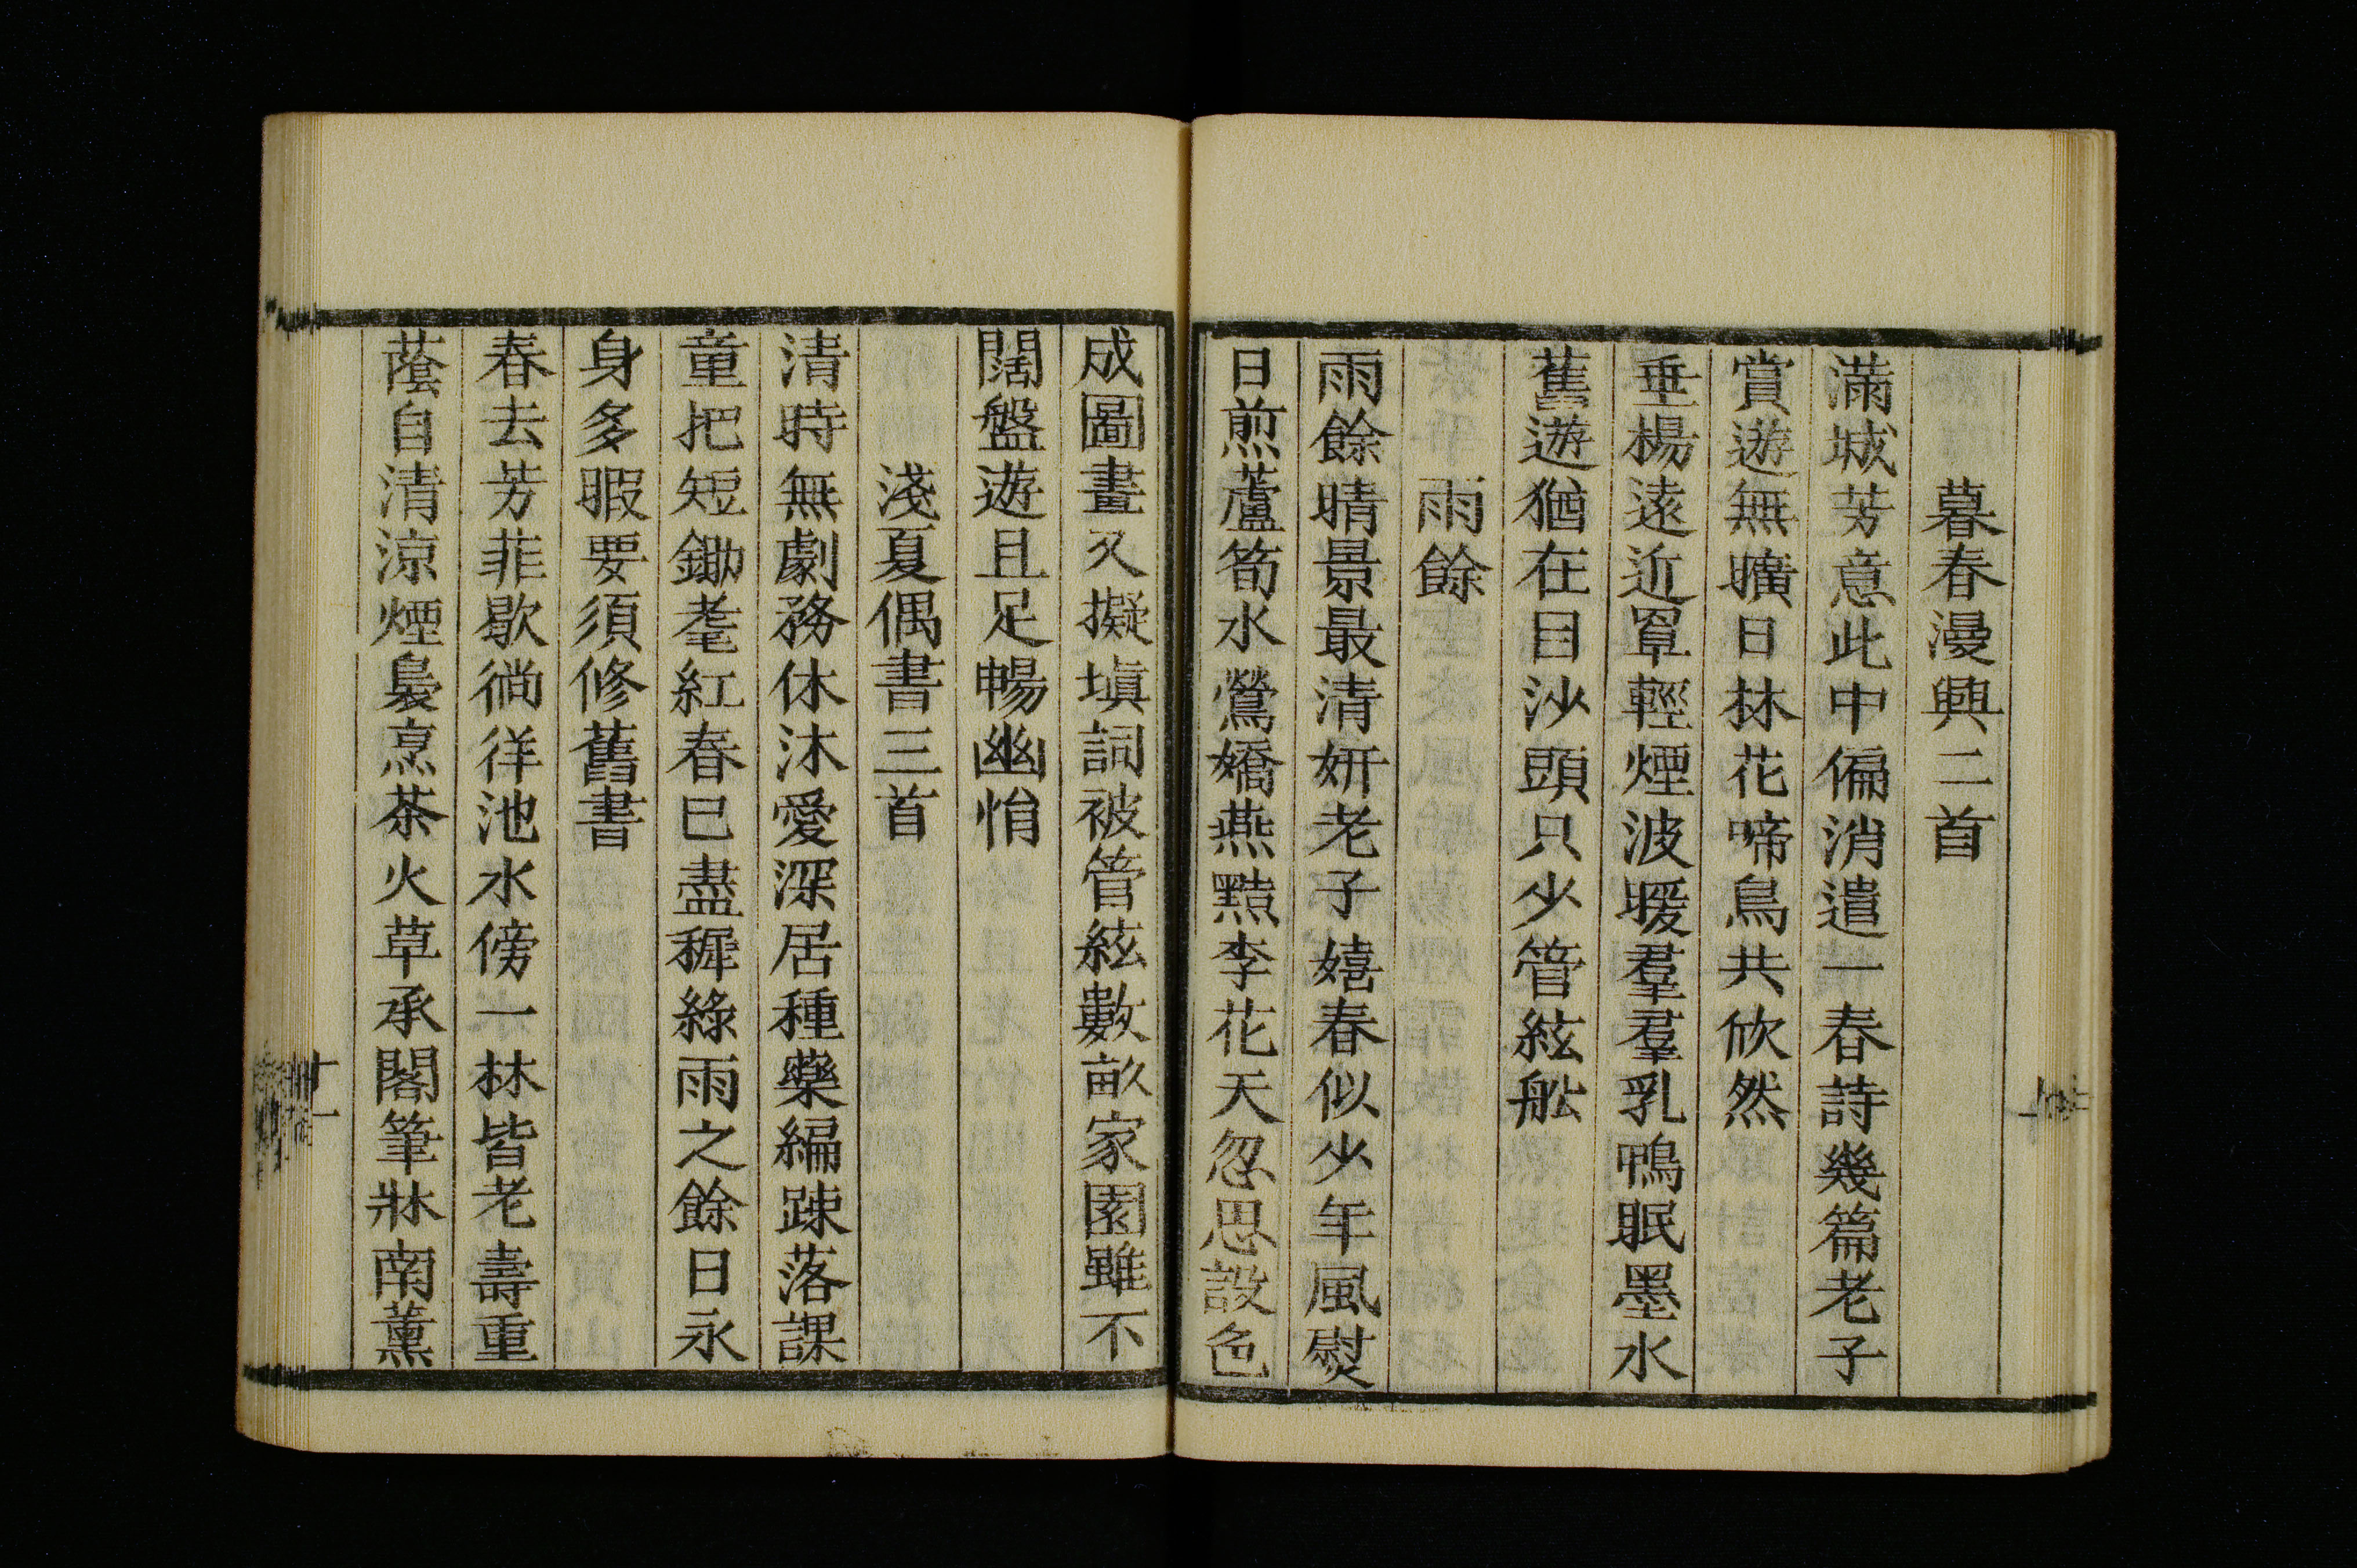 暮春漫興二首
滿城芳意此中偏消遣一春詩幾篇老子
賞遊無曠日林花啼鳥共欣然
垂楊遠近罩輕煙波暖羣羣乳鴨眠墨水
舊遊猶在目沙頭只少管絃舩
雨餘
雨餘晴景最清妍老子嬉春似少年風熨
日煎蘆筍水鶯嬌燕黠李花天忽思設色
成圖畫又擬塡詞被管絃數畝家園雖不
闊盤遊且足暢幽悁
淺夏偶書三首
清時無劇務休沐愛深居種藥編踈落課
童把短鋤耄紅春已盡穉綠雨之餘日永
身多暇要須修舊書
春去芳菲歇徜徉池水傍一林皆老壽重
蔭自清涼煙裊烹茶火草承閣筆牀南薰
十一